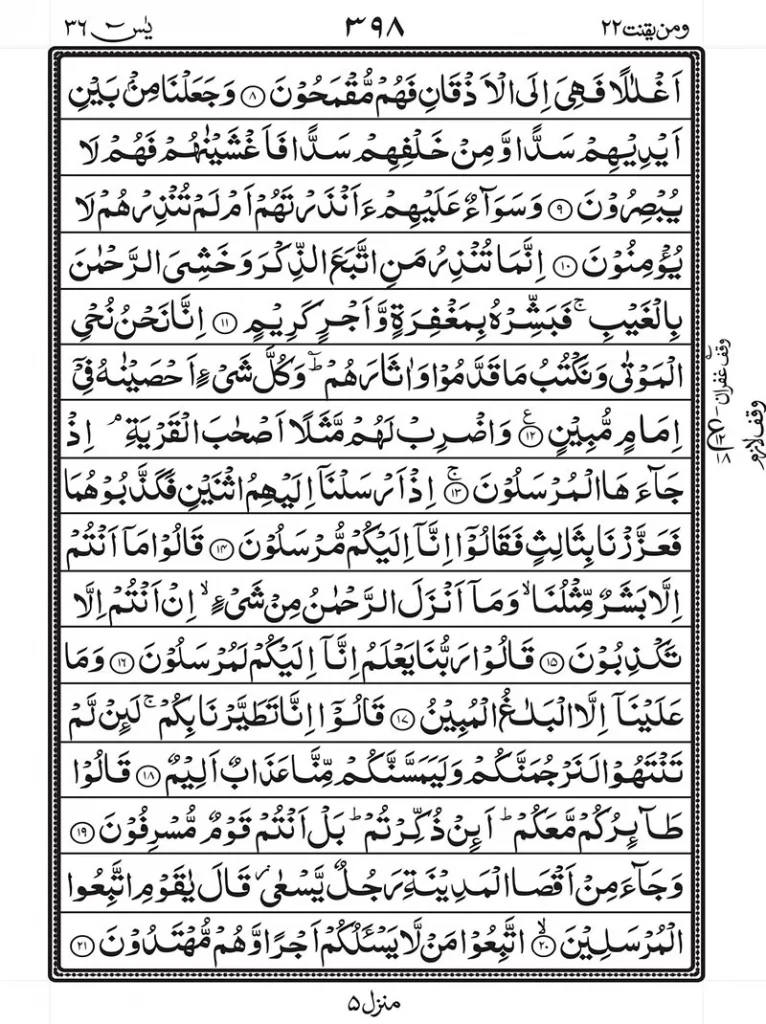 ومن يقنت ٢٢
٣٩٨
يٰسٓ ٣٦
اَغْلٰلًا فَهِيَ اِلَى الْاَذْقَانِ فَهُمْ مُّقْمَحُوْنَ ٨ وَجَعَلْنَا مِنْۢ بَيْنِ
اَيْدِيْهِمْ سَدًّا وَّمِنْ خَلْفِهِمْ سَدًّا فَاَغْشَيْنٰهُمْ فَهُمْ لَا
يُبْصِرُوْنَ ٩ وَسَوَآءٌ عَلَيْهِمْ ءَاَنْذَرْتَهُمْ اَمْ لَمْ تُنْذِرْهُمْ لَا
يُؤْمِنُوْنَ ١٠ اِنَّمَا تُنْذِرُ مَنِ اتَّبَعَ الذِّكْرَ وَخَشِيَ الرَّحْمٰنَ
بِالْغَيْبِ ۚ فَبَشِّرْهُ بِمَغْفِرَةٍ وَّاَجْرٍ كَرِيْمٍ ١١ اِنَّا نَحْنُ نُحْيِ
الْمَوْتٰى وَنَكْتُبُ مَا قَدَّمُوْا وَاٰثَارَهُمْ ؕ وَكُلَّ شَيْءٍ اَحْصَيْنٰهُ فِيْٓ
اِمَامٍ مُّبِيْنٍ ١٢ ع وَاضْرِبْ لَهُمْ مَّثَلًا اَصْحٰبَ الْقَرْيَةِ ۘ اِذْ
جَآءَهَا الْمُرْسَلُوْنَ ١٣ ۚ اِذْ اَرْسَلْنَآ اِلَيْهِمُ اثْنَيْنِ فَكَذَّبُوْهُمَا
فَعَزَّزْنَا بِثَالِثٍ فَقَالُوْٓا اِنَّآ اِلَيْكُمْ مُّرْسَلُوْنَ ١٤ قَالُوْا مَآ اَنْتُمْ
اِلَّا بَشَرٌ مِّثْلُنَا ۙ وَمَآ اَنْزَلَ الرَّحْمٰنُ مِنْ شَيْءٍ ۙ اِنْ اَنْتُمْ اِلَّا
تَكْذِبُوْنَ ١٥ قَالُوْا رَبُّنَا يَعْلَمُ اِنَّآ اِلَيْكُمْ لَمُرْسَلُوْنَ ١٦ وَمَا
عَلَيْنَآ اِلَّا الْبَلٰغُ الْمُبِيْنُ ١٧ قَالُوْٓا اِنَّا تَطَيَّرْنَا بِكُمْ ۚ لَئِنْ لَّمْ
تَنْتَهُوْا لَنَرْجُمَنَّكُمْ وَلَيَمَسَّنَّكُمْ مِّنَّا عَذَابٌ اَلِيْمٌ ١٨ قَالُوْا
طَآئِرُكُمْ مَّعَكُمْ ؕ اَئِنْ ذُكِّرْتُمْ ؕ بَلْ اَنْتُمْ قَوْمٌ مُّسْرِفُوْنَ ١٩
وَجَآءَ مِنْ اَقْصَا الْمَدِيْنَةِ رَجُلٌ يَّسْعٰى ؗ قَالَ يٰقَوْمِ اتَّبِعُوا
الْمُرْسَلِيْنَ ٢٠ ۙ اتَّبِعُوْا مَنْ لَّا يَسْـَٔلُكُمْ اَجْرًا وَّهُمْ مُّهْتَدُوْنَ ٢١
وقف غفران
وقف لازم
منزل ٥